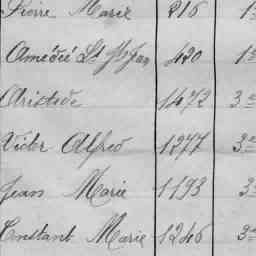 Pierre Marie 216 1
Amédié St Jn Jan 420 1
Aristide 1472 3e
Victor Alfred 1277 3e
Jean Marie 1193 3
Constant Marie 1246 3e